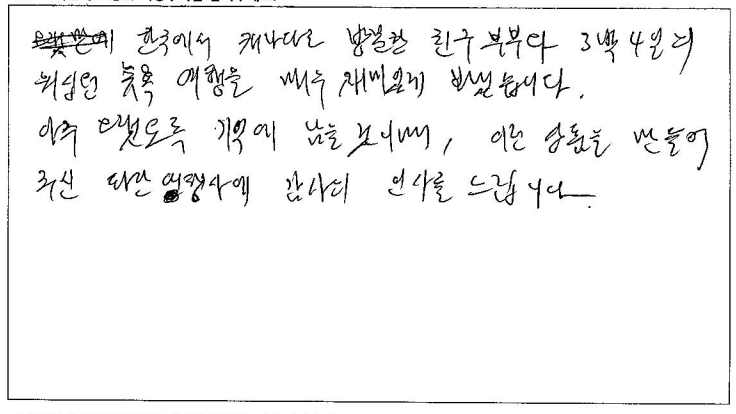 한국에서 캐나다로 방문한 친구 부부와 3박 4일의
워싱턴 뉴욕 여행을 매우 재미있게 보냈습니다.
아주 오랫도록 기억에 남을 것이며, 이런 상품을 만들어
주신 파란 여행사에 감사의 인사를 드립니다.